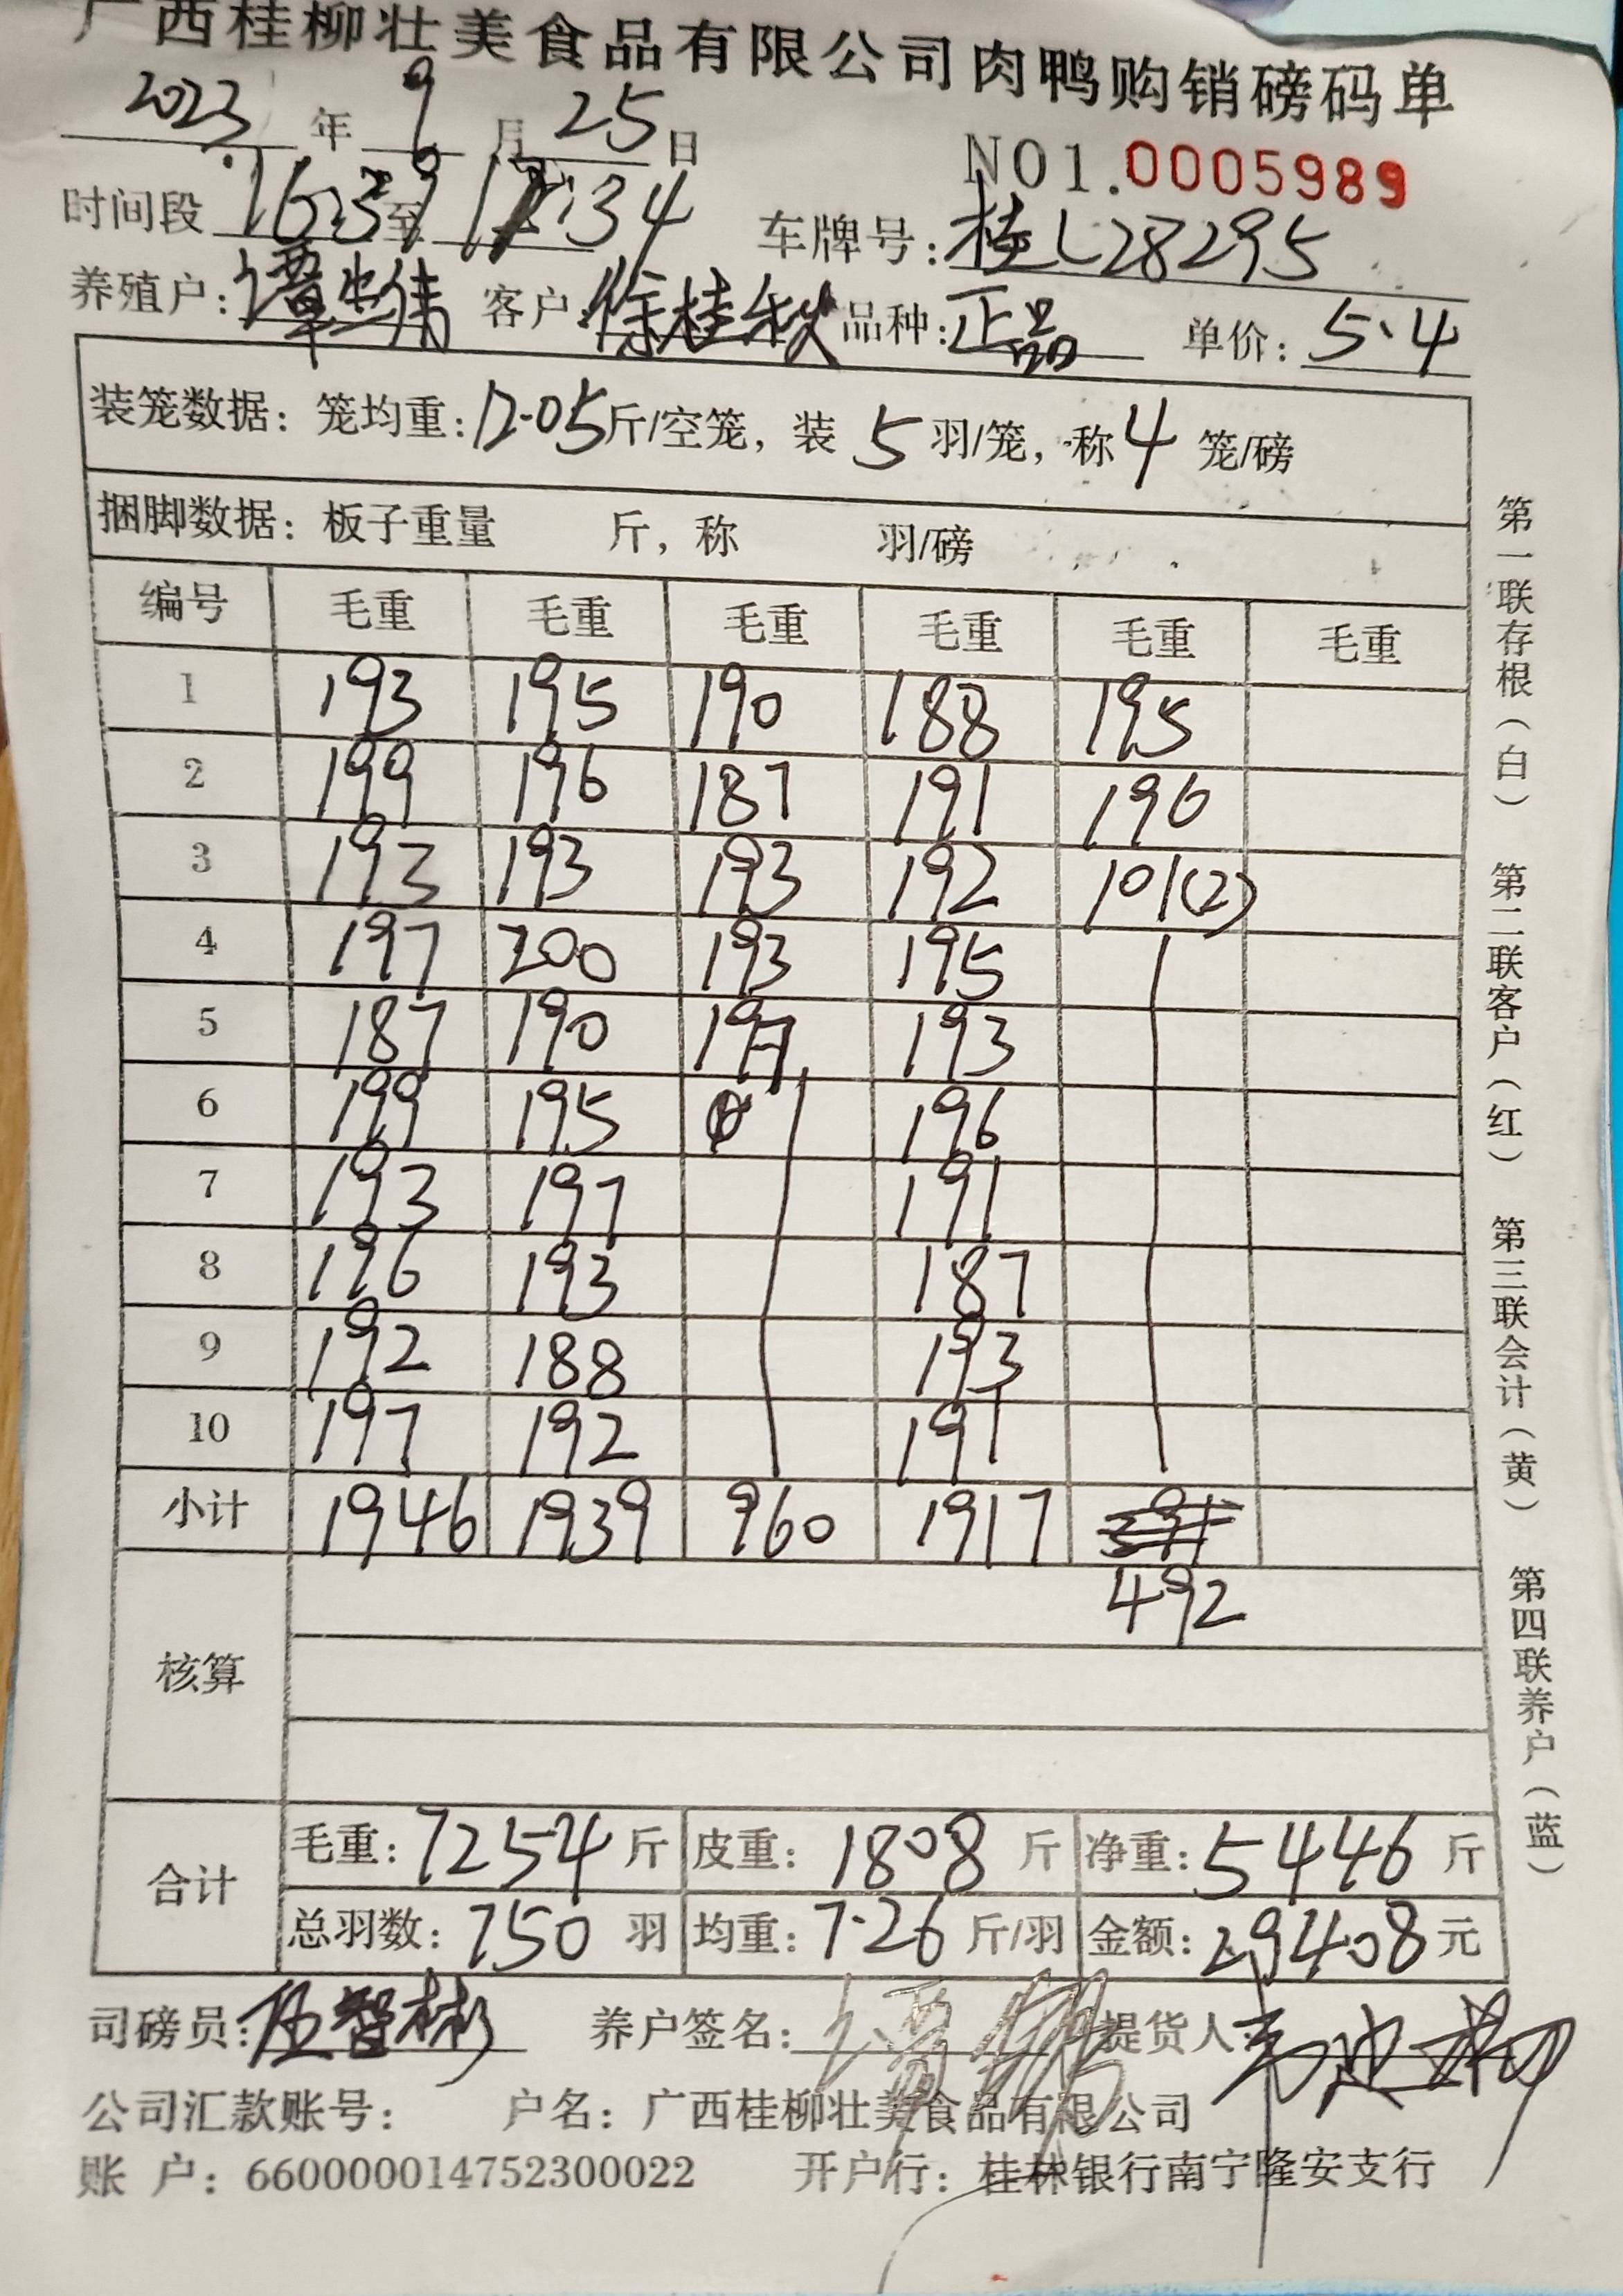 广西桂柳壮美食品有限公司肉鸭购销磅码单
2023年9月25日
NO1.0005989
时间段16:39至17:34 车牌号:桂L28295
养殖户: 客户:徐桂秋 品种:正品 单价:5.4
装笼数据:笼均重:12.05斤/空笼,装5羽/笼,称4笼/磅
捆脚数据:板子重量 斤,称 羽/磅
编号 毛重 毛重 毛重 毛重 毛重 毛重
1 193 195 190 188 195
2 199 196 187 191 196
3 193 193 193 192 101(2)
4 197 200 193 195
5 187 190 197 193
6 199 195 196
7 193 197 191
8 196 193 187
9 192 188 193
10 197 192 191
小计 1946 1939 960 1917
492
核算
合计 毛重:7254斤 皮重:1808斤 净重:5446斤
总羽数:750羽 均重:7.26斤/羽 金额:29408元
司磅员:伍智彬 养户签名: 提货人:
公司汇款账号: 户名:广西桂柳壮美食品有限公司
账 户:660000014752300022 开户行:桂林银行南宁隆安支行
第一联存根(白) 第二联客户(红) 第三联会计(黄) 第四联养户(蓝)